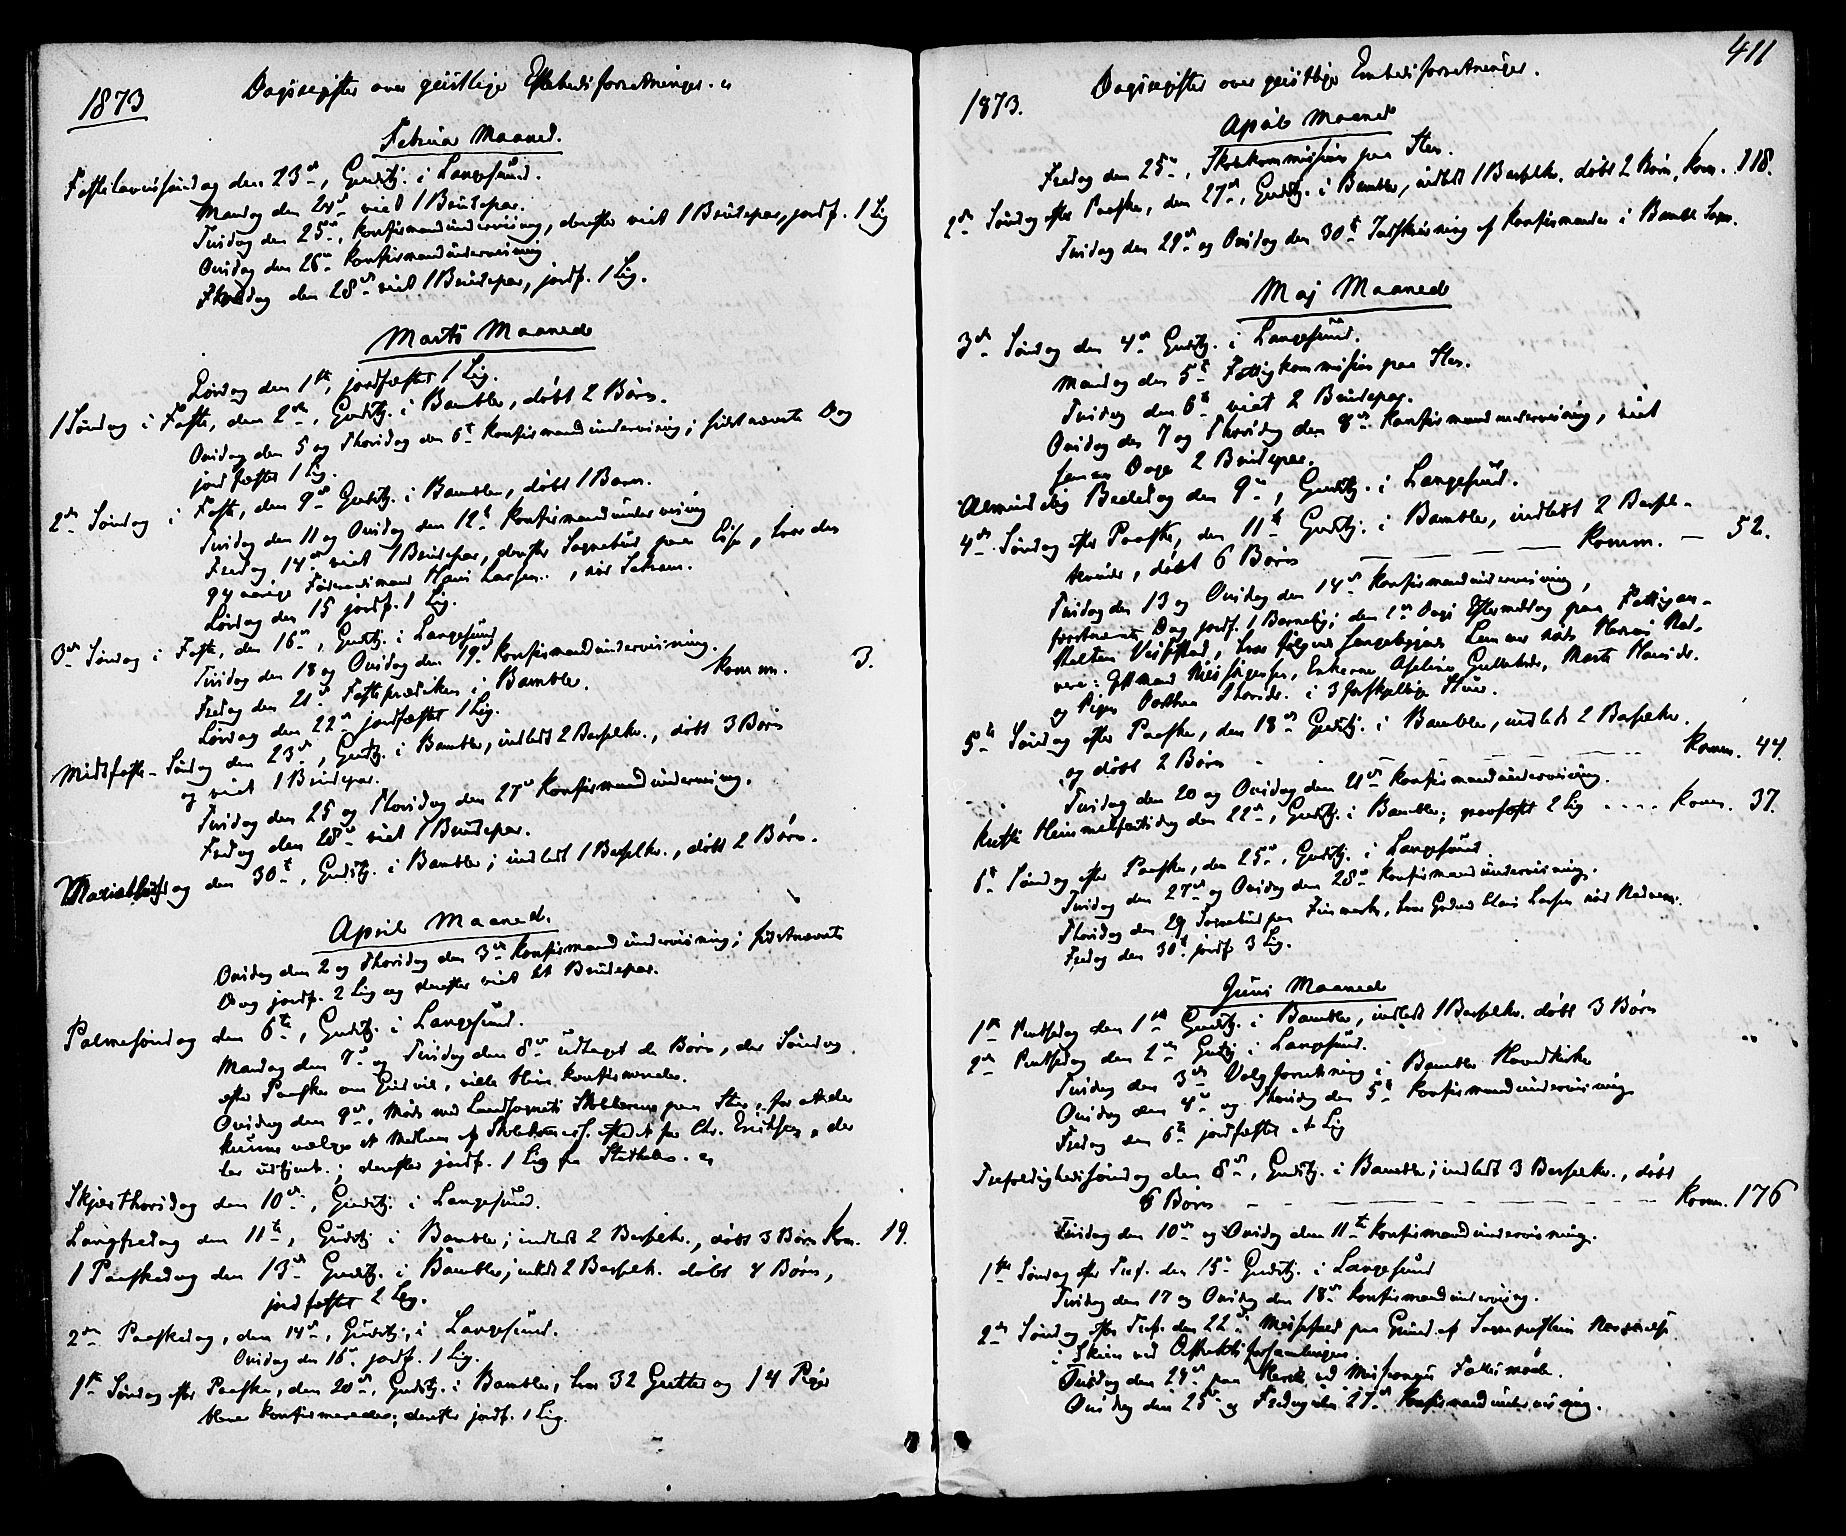 1873
Dagsregister over geistlige Embedsforretninger.
Februar Maaned.
Fastelavnssøndag den 23de, Gudstj. i Langesund.
Mandag den 24de viet 1 Brudepar.
Tirsdag den 25de, Konfirmandundervisning, derefter viet 1 Brudepar, jordf. 1 Lig
Onsdag den 26de Konfirmandundervisning
Fredag den 28de viet 1 Brudepar, jordf. 1 Lig.
Marts Maaned
Lørdag den 1ste, jordfæstet 1 Lig.
1 Søndag i Faste, den 2den, Gudstj. i Bamble, døbt 2 Børn.
Onsdag den 5 og Thorsdag den 6te Konfirmandundervisning; sidstnævnte Dag
jordfæstet 1 Lig.
2den Søndag i Faste, den 9de Gudstj. i Bamble, døbt 1 Barn.
Tirsdag den 11 og Onsdag den 12te Konfirmandundervisning
Fredag 14de viet 1 Brudepar, derefter Sognebud paa, hvor den
94 aarige Hans Larsen, nød Sakram.
Lørdag den 15 jordf. 1 Lig.
3die Søndag i Faste, den 16de, Gudstj. i Langesund
Tirsdag den 18 og Onsdag den 19. Konfirmandundervisning.
Fredag den 21de Fasteprædiken i Bamble. Komm. 3.
Lørdag den 22de jordfæstet 1 Lig.
Midfaste-Søndag den 23de, Gudstj. i Bamble, indledt 2 Barselkv., døbt 3 Børn
og viet 1 Brudepar.
Tirsdag den 25 og Thorsdag den 27de Konfirmandundervisning.
Fredag den 28de viet 1 Brudepar.
Mariæ dag den 30te, Gudstj. i Bamble; indledt 1 Barselkv., døbt 2 Børn.
April Maaned.
Onsdag den 2 og Thorsdag den 3die Konfirmandundervisning; sidstnævnte
Dag jordf. 2 Lig og derefter viet et Brudepar.
Palmesøndag den 6te, Gudstj. i Langesund.
Mandag den 7de og Tirsdag den 8de udtaget de Børn, der Søndag
efter Paaske om Gud vil, ville blive konfirmerede.
Onsdag den 9de, Møde med Landsognets Skolelærere paa Stes, for at de
kunne vælge et Medlem af Skolekommiss. istedet for Chr. Eriksen, der
udtjent; derefter jordf. 1 Lig fra Stathelle.
Skjærthorsdag den 10de, Gudstj. i Langesund.
Langfredag den 11te, Gudstj. i Bamble; indledt 2 Barselkv., døbt 3 Børn Kom. 19.
1 Paaskedag den 13de Gudstj. i Bamble; indledt 2 Barselk. døbt 4 Børn,
jordfæstet 2 Lig.
2den Paaskedag, den 14de, Gudstj. i Langesund.
Onsdag den 16de jordf. 1 Lig.
1ste Søndag efter Paaske, den 20de, Gudstj. i Bamble, hvor 32 Gutter og 14 Piger
bleve konfirmerede; derefter jordf. 1 Lig.
411
1873.
Dagsregister over geistlige Embedsforretninger.
April Maaned
Fredag den 25de, Skolekommission paa Stes.
2den Søndag efter Paaske, den 27de, Gudstj. i Bamble, indledt 1 Barselkv. døbt 2 Børn, Kom. 118.
Tirsdag den 29de og Onsdag den 30te Indskrivning af Konfirmander i Bamble Sogn.
Maj Maaned
3die Søndag den 4de Gudstj. i Langesund.
Mandag den 5te Fattigkommission paa Stes.
Tirsdag den 6te viet 2 Brudepar.
Onsdag den 7 og Thorsdag den 8de Konfirmandundervisning, viet
samme Dage 2 Brudepar.
Almindelig Bededag den 9de, Gudstj. i Langesund.
4de Søndag efter Paaske, den 11te Gudstj. i Bamble, indledt 2 Barsel-
kvinder, døbt 6 Børn — — — Komm. — 52.
Tirsdag den 13 og Onsdag den 14de Konfirmandundervisning,
førstnævnte Dag jordf. 1 Barnelig; den 1ste Dags Eftermiddag paa Fattigan-
stalten, hvor følgende Lemmer nød Herrens Nad-
vere: Nils Jørgensen, Enkerne Gulbrandsdr., Marte Hansdr.
og Pigen Dorthea i 3 forskjellige Stuer.
5te Søndag efter Paaske, den 18de Gudstj. i Bamble, indledt 2 Barselkv.
og døbt 2 Børn — — — Komm. 44.
Tirsdag den 20 og Onsdag den 21de Konfirmandundervisning.
Kristi Himmelfartsdag den 22de, Gudstj. i Bamble; jordfæstet 2 Lig .... Kom. 37.
6te Søndag efter Paaske, den 25de, Gudstj. i Langesund
Tirsdag den 27de og Onsdag den 28de Konfirmandundervisning.
Thorsdag den 29 Sognebud paa, hvor Larsen nød Nadver.
Fredag den 30te jordf. 3 Lig.
Juni Maaned
1ste Pintsedag den 1ste Gudstj. i Bamble, indledt 1 Barselkv. døbt 3 Børn
2den Pintsedag den 2den Gudstj. i Langesund.
Tirsdag den 3die Valgforretning i Bamble Hovedkirke
Onsdag den 4de og Thorsdag den 5te Konfirmandundervisning
Fredag den 6te jordfæstet et Lig
Trefoldighedssøndag den 8de, Gudstj. i Bamble; indledt 3 Barselkv., døbt
6 Børn — — — Komm. 176
Tirsdag den 10de og Onsdag den 11te Konfirmandundervisning.
1ste Søndag efter Tref. den 15de Gudstj. i Langesund
Tirsdag den 17 og Onsdag den 18de Konfirmandundervisning.
2den Søndag efter Tref. den 22de Messefald paa Grund af Sognepræstens Nærværelse
i Skien ved Distriktsforsamlingen.
Tirsdag den 24de paa ved Missionens Fællesmøde.
Onsdag den 25de og Fredag den 27de Konfirmandundervisning.